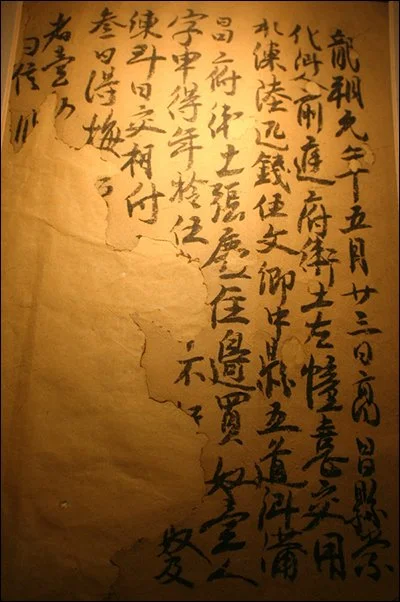 龍朔元年五月廿三日高昌縣崇
化鄉人前庭府衛士左憧憙交用
水練陸疋錢伍文柳中縣五道鄉蒲
昌府衛士張慶住邊買奴壹人
字申得年拾伍 不 奴及
練即日交相付
叁日得悔
者壹